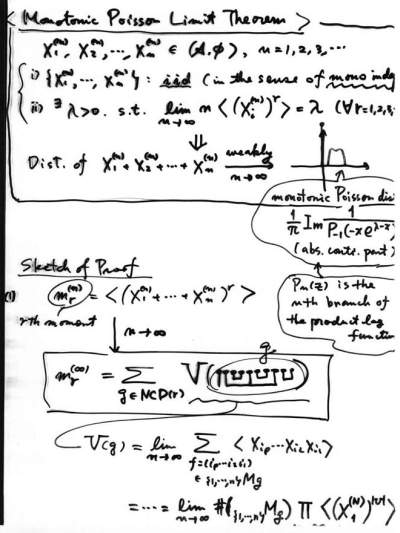 < Monotonic Poisson Limit Theorem >
X₁⁽ⁿ⁾, X₂⁽ⁿ⁾, ⋯, Xₙ⁽ⁿ⁾ ∈ (A, φ), n = 1, 2, 3, ⋯
i) {X₁⁽ⁿ⁾, ⋯, Xₙ⁽ⁿ⁾} : iid (in the sense of mono indep
ii) ∃λ>0. s.t. lim n→∞ n <(Xᵢ⁽ⁿ⁾)ʳ> = λ (∀r=1,2,3,
⇓
Dist. of X₁⁽ⁿ⁾ + X₂⁽ⁿ⁾ + ⋯ + Xₙ⁽ⁿ⁾ weakly → n→∞
monotonic Poisson dis
1/π Im 1/P₋₁(-x e^(λ-x)
(abs. conti. part)
Pₙ(z) is the
nth branch of
the product log
function
Sketch of Proof
(1) mᵣ⁽ⁿ⁾ = <(X₁⁽ⁿ⁾ + ⋯ + Xₙ⁽ⁿ⁾)ʳ>
rth moment
↓ n→∞
g
mᵣ⁽∞⁾ = Σ g∈NCD(r) V( )
V(g) = lim n→∞ Σ f=(iₚ⋯i₂i₁) ∈ {1,⋯,n}Mg <Xiₚ⋯Xi₂Xi₁>
= ⋯ = lim n→∞ #({1,⋯,n}Mg) Π <(X₁⁽ᴺ⁾)^|v|>